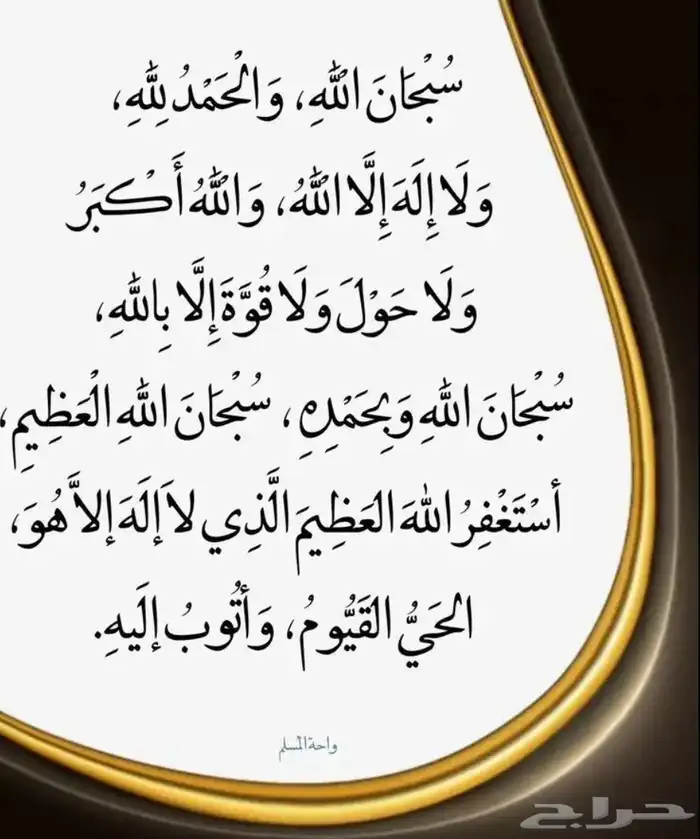 سُبْحَانَ اللهِ، وَالْحَمْدُ لِلّٰهِ،
وَلَا إِلَهَ إِلَّا اللهُ، وَاللهُ أَكْبَرُ
وَلَا حَوْلَ وَلَا قُوَّةَ إِلَّا بِاللهِ،
سُبْحَانَ اللهِ وَبِحَمْدِهِ، سُبْحَانَ اللهِ الْعَظِيمِ،
أسْتَغْفِرُ اللهَ العَظِيمَ الَّذِي لاَ إلَهَ إلاَّ هُوَ،
الحَيُّ القَيُّومُ، وَأتُوبُ إلَيهِ.
واحة المسلم
حراج